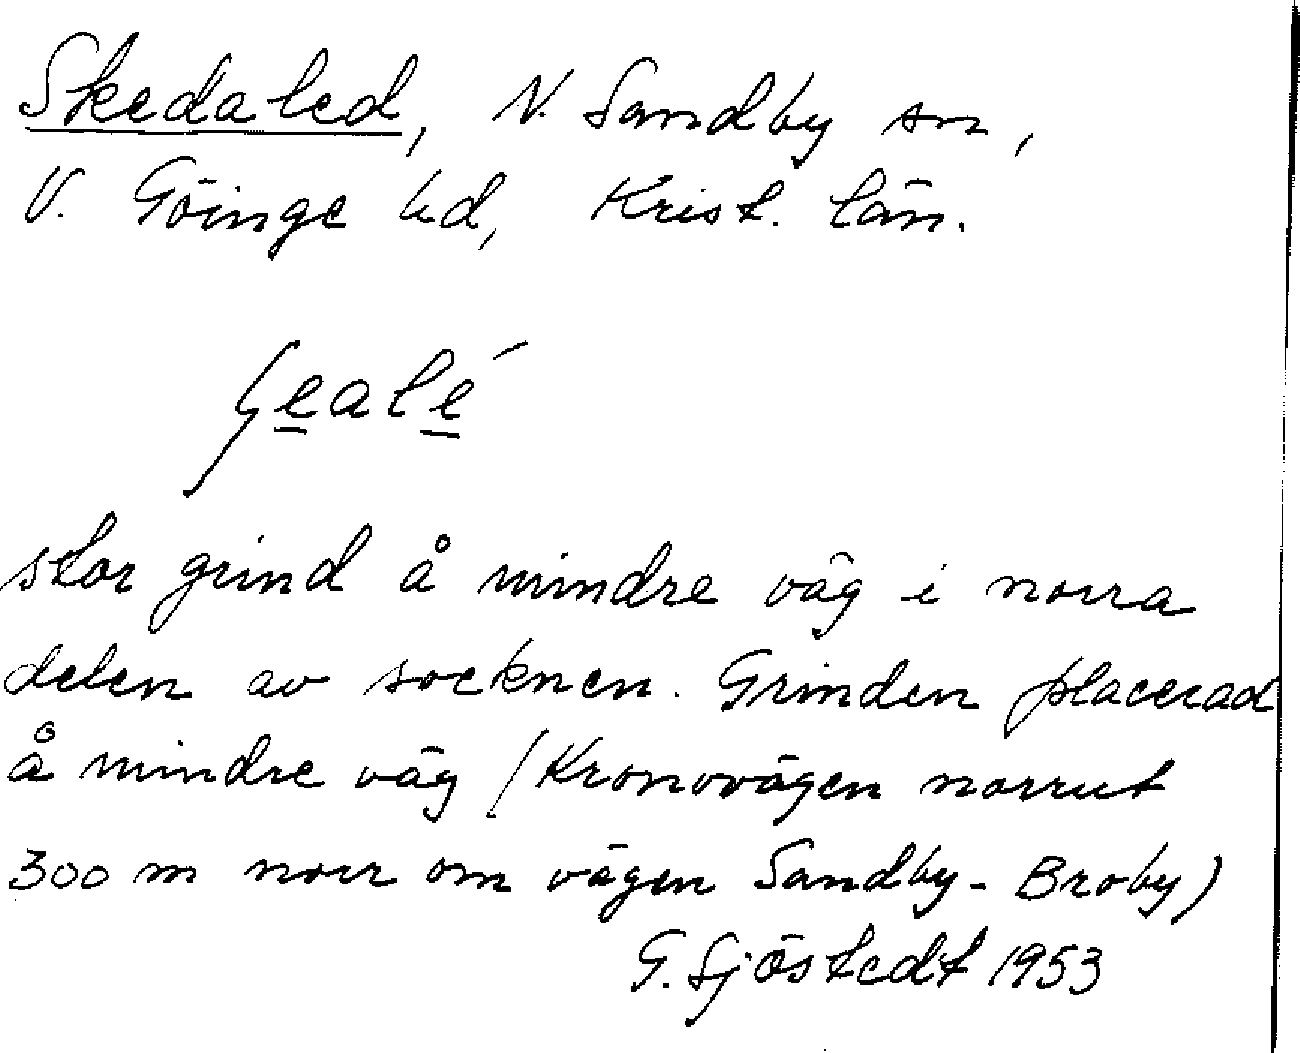 Skedaled, N. Sandby sn,
V. Göinge hd, Krist. län.
ʃealé
stor grind å mindre väg i norra
delen av socknen. Grinden placerad
å mindre väg (Kronovägen norrut
300 m norr om vägen Sandby - Broby)
G. Sjöstedt 1953